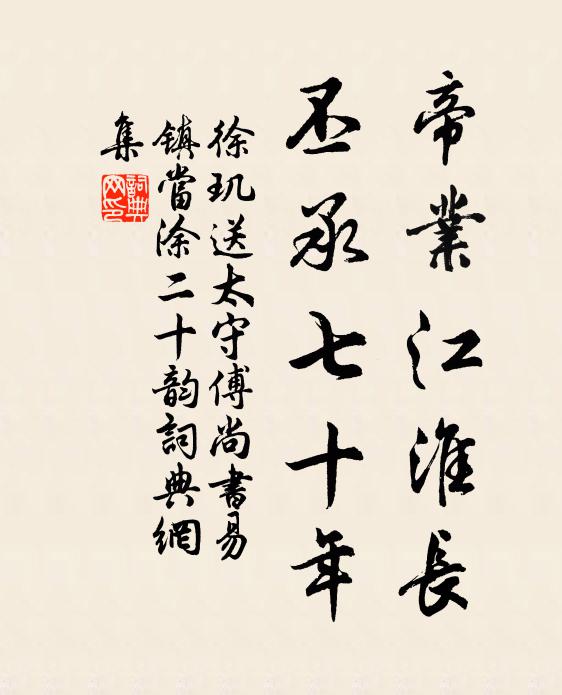 帝業江淮長
丕承七十年
徐玑送太守傅尚書易
镇當涂二十韵詞典網
集
詞典网印